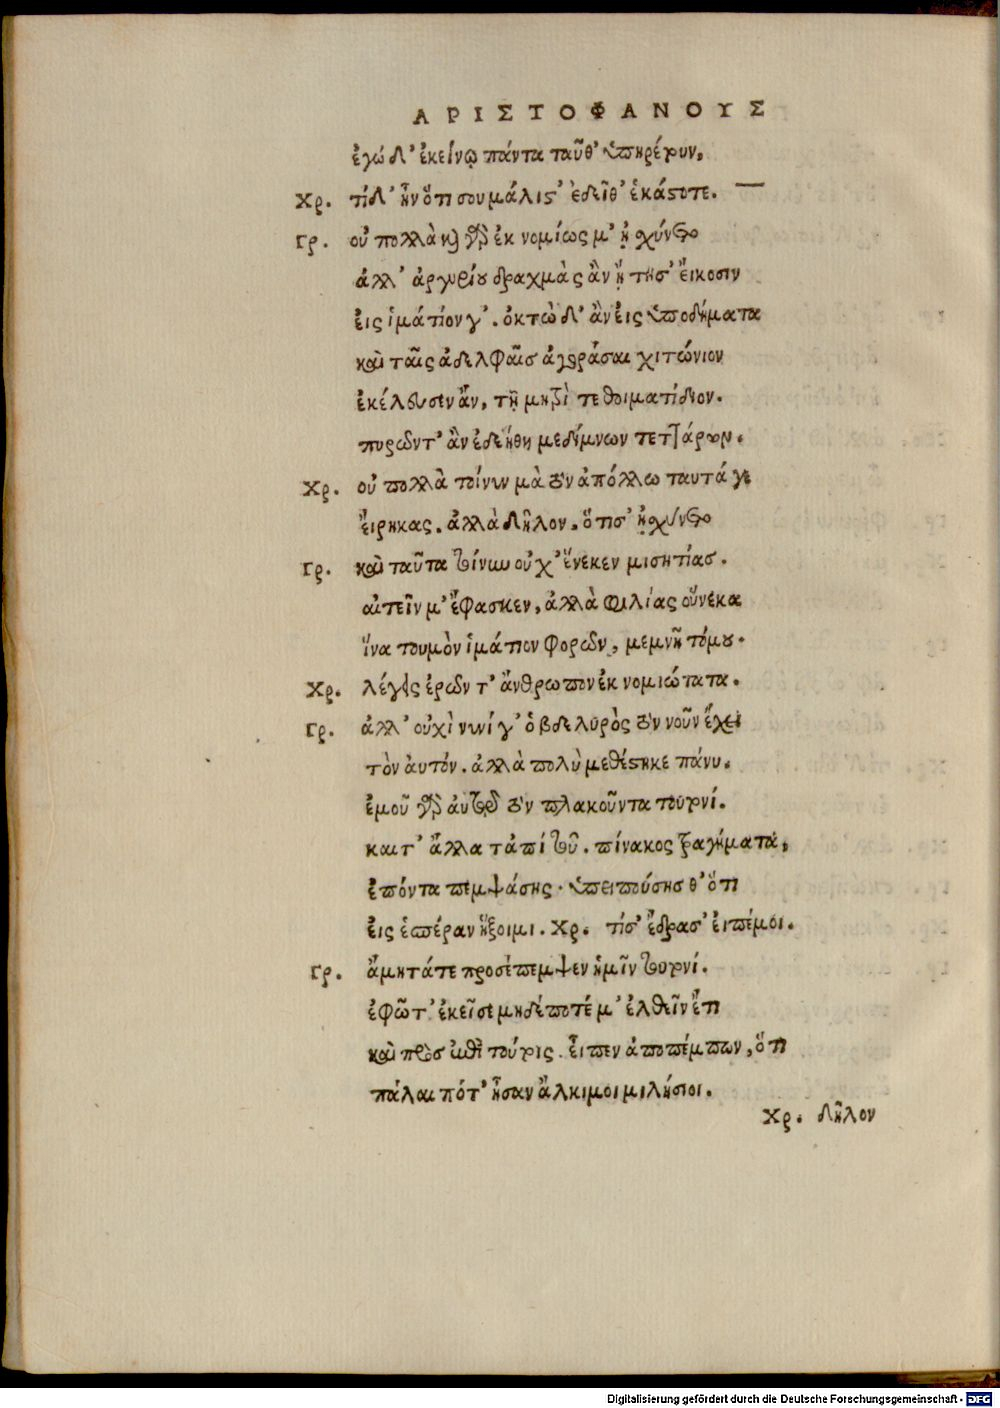 ΑΡΙΣΤΟΦΑΝΟΥΣ
ἐγώ δ' ἐκείνῳ πάντα ταῦθ' ὑπηρέτουν,
Χρ. τίδ' ἦν ὅτι σου μάλιστ' ἐδεῖθ' ἑκάστοτε.
Γρ. οὐ πολλὰ καὶ γὰρ ἐκ νομίως μ' ᾐσχύνετο
ἀλλ' ἀργυρίου δραχμὰς ἂν ᾔτησ' εἴκοσιν
εἰς ἱμάτιον γ'. ὀκτὼ δ' ἂν εἰς ὑποδήματα
καὶ ταῖς ἀδελφαῖσ ἀγοράσαι χιτώνιον
ἐκέλευσεν ἄν, τῇ μητρὶ τε θοιματίδιον.
πυρῶντ' ἂν ἐδεήθη μεδίμνων τεττάρων.
Χρ. οὐ πολλὰ τοίνυν μὰ τὸν ἀπόλλω ταυτά γε
εἴρηκας. ἀλλὰ δῆλον. ὅτισ' ᾐσχύνετο
Γρ. καὶ ταῦτα τοίνυν οὐχ' ἕνεκεν μισητίασ.
αἰτεῖν μ' ἔφασκεν, ἀλλὰ φιλίας οὕνεκα
ἵνα τουμὸν ἱμάτιον φορῶν, μεμνῇτό μου.
Χρ. λέγεις ἐρῶντ' ἄνθρωπον ἐκ νομιώτατα.
Γρ. ἀλλ' οὐχὶ νυνί γ' ὁ βδελυρὸς τὸν νοῦν ἔχει
τὸν ἀυτόν. ἀλλὰ πολὺ μεθέστηκε πάνυ.
ἐμοῦ γὰρ ἀυτῷ τὸν πλακοῦντα τουτονί.
και τ' ἄλλα τἀπί τοῦ. πίνακος τραγήματα,
ἐπόντα πεμψάσης. ὑπειπούσησ θ' ὅτι
εἰς ἑσπέραν ἥξοιμι. Χρ. τίσ' ἔδρασ' ἐιπέμοι.
Γρ. ἄμητά τε προσέπεμψεν ἡμῖν τουτονί.
ἐφῶτ' ἐκεῖσε μηδέποτέ μ' ἐλθεῖν ἔτι
καὶ πρὸσ ἐπὶ τούτοις. εἶπεν ἀποπέμπων, ὅτι
πάλαι πότ' ἦσαν ἄλκιμοι μιλήσιοι.
Χρ. δῆλον
Digitalisierung gefördert durch die Deutsche Forschungsgemeinschaft - DFG